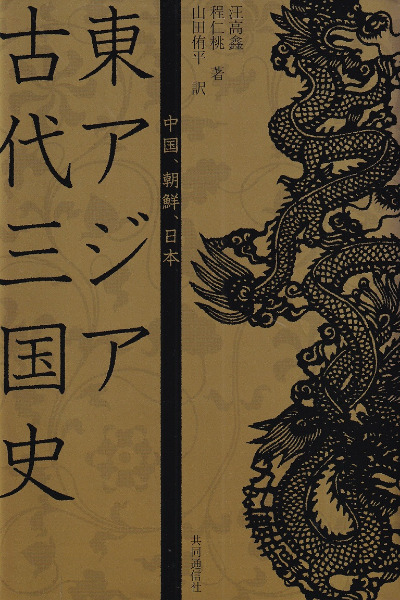 汪高鑫
程仁桃 著
山田侑平 訳
中国、朝鮮、日本
東アジア
古代三国史
共同通信社